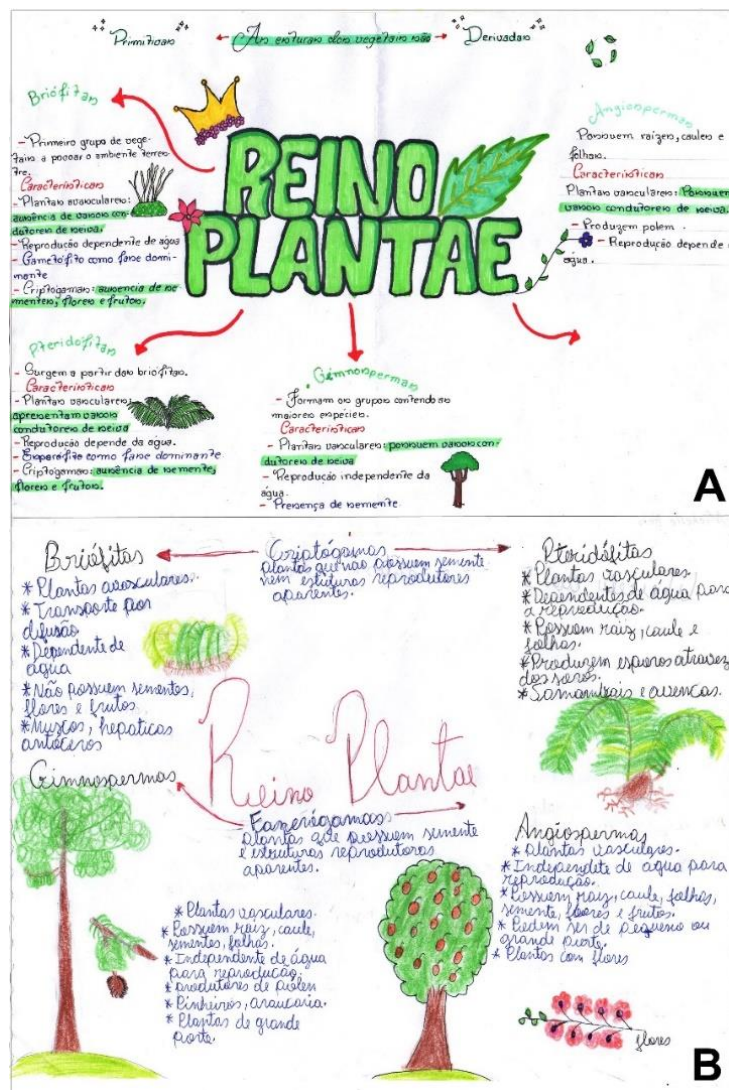 Primitivas ← As estruturas dos vegetais são → Derivadas
Briófitas
- Primeiro grupo de vege-
tais a povoar o ambiente terres-
tre.
Características
- Plantas avasculares:
ausência de vasos con-
dutores de seiva.
- Reprodução dependente de água
- Gametófito como fase domi-
nante
- Criptógamas: ausência de se-
mentes, flores e frutos.
REINO
PLANTAE
Angiospermas
Possuem raízes, caules e
folhas.
Características
Plantas vasculares: Possuem
vasos condutores de seiva.
- Produzem polem
- Reprodução depende
água.
Pteridófitas
- Surgem a partir das briófitas.
Características
- Plantas vasculares:
apresentam vasos
condutores de seiva
- Reprodução depende da água.
- Esporófito como fase dominante
- Criptógamas: ausência de semente,
flores e frutos.
Gimnospermas
- Formam os grupos contendo as
maiores espécies.
Características
- Plantas vasculares: possuem vasos con-
dutores de seiva
- Reprodução independente da
água.
- Presença de semente
A
Briófitas
* Plantas avasculares.
* Transporte por
difusão
* Dependente de
água
* Não possuem sementes,
flores e frutos
* Musgos, hepaticas
antóceros
Criptógamas
plantas que não possuem semente
nem estruturas reprodutores
aparentes.
Pteridófitas
* Plantas vasculares.
* Dependentes de água para
a reprodução.
* Possuem raiz, caule e
folhas.
* Produzem esporos atravez
dos soros.
* Samambais e avencas.
Reino Plantae
Gimnospermas
Fanerógamas
plantas que possuem semente
e estruturas reprodutoras
aparentes.
* Plantas vasculares.
* Possuem raiz, caule,
sementes, folhas.
* Independente de água
para reprodução.
* produtores de pólen
* Pinheiros, araucária.
* Plantas de grande
porte.
Angiospermas
* Plantas vasculares.
* Independite de água para
reprodução.
* Possuem raiz, caule, folhas,
semente, flores e frutos.
* Podem ser de pequeno ou
grande porte.
* Plantas com flores
flores
B